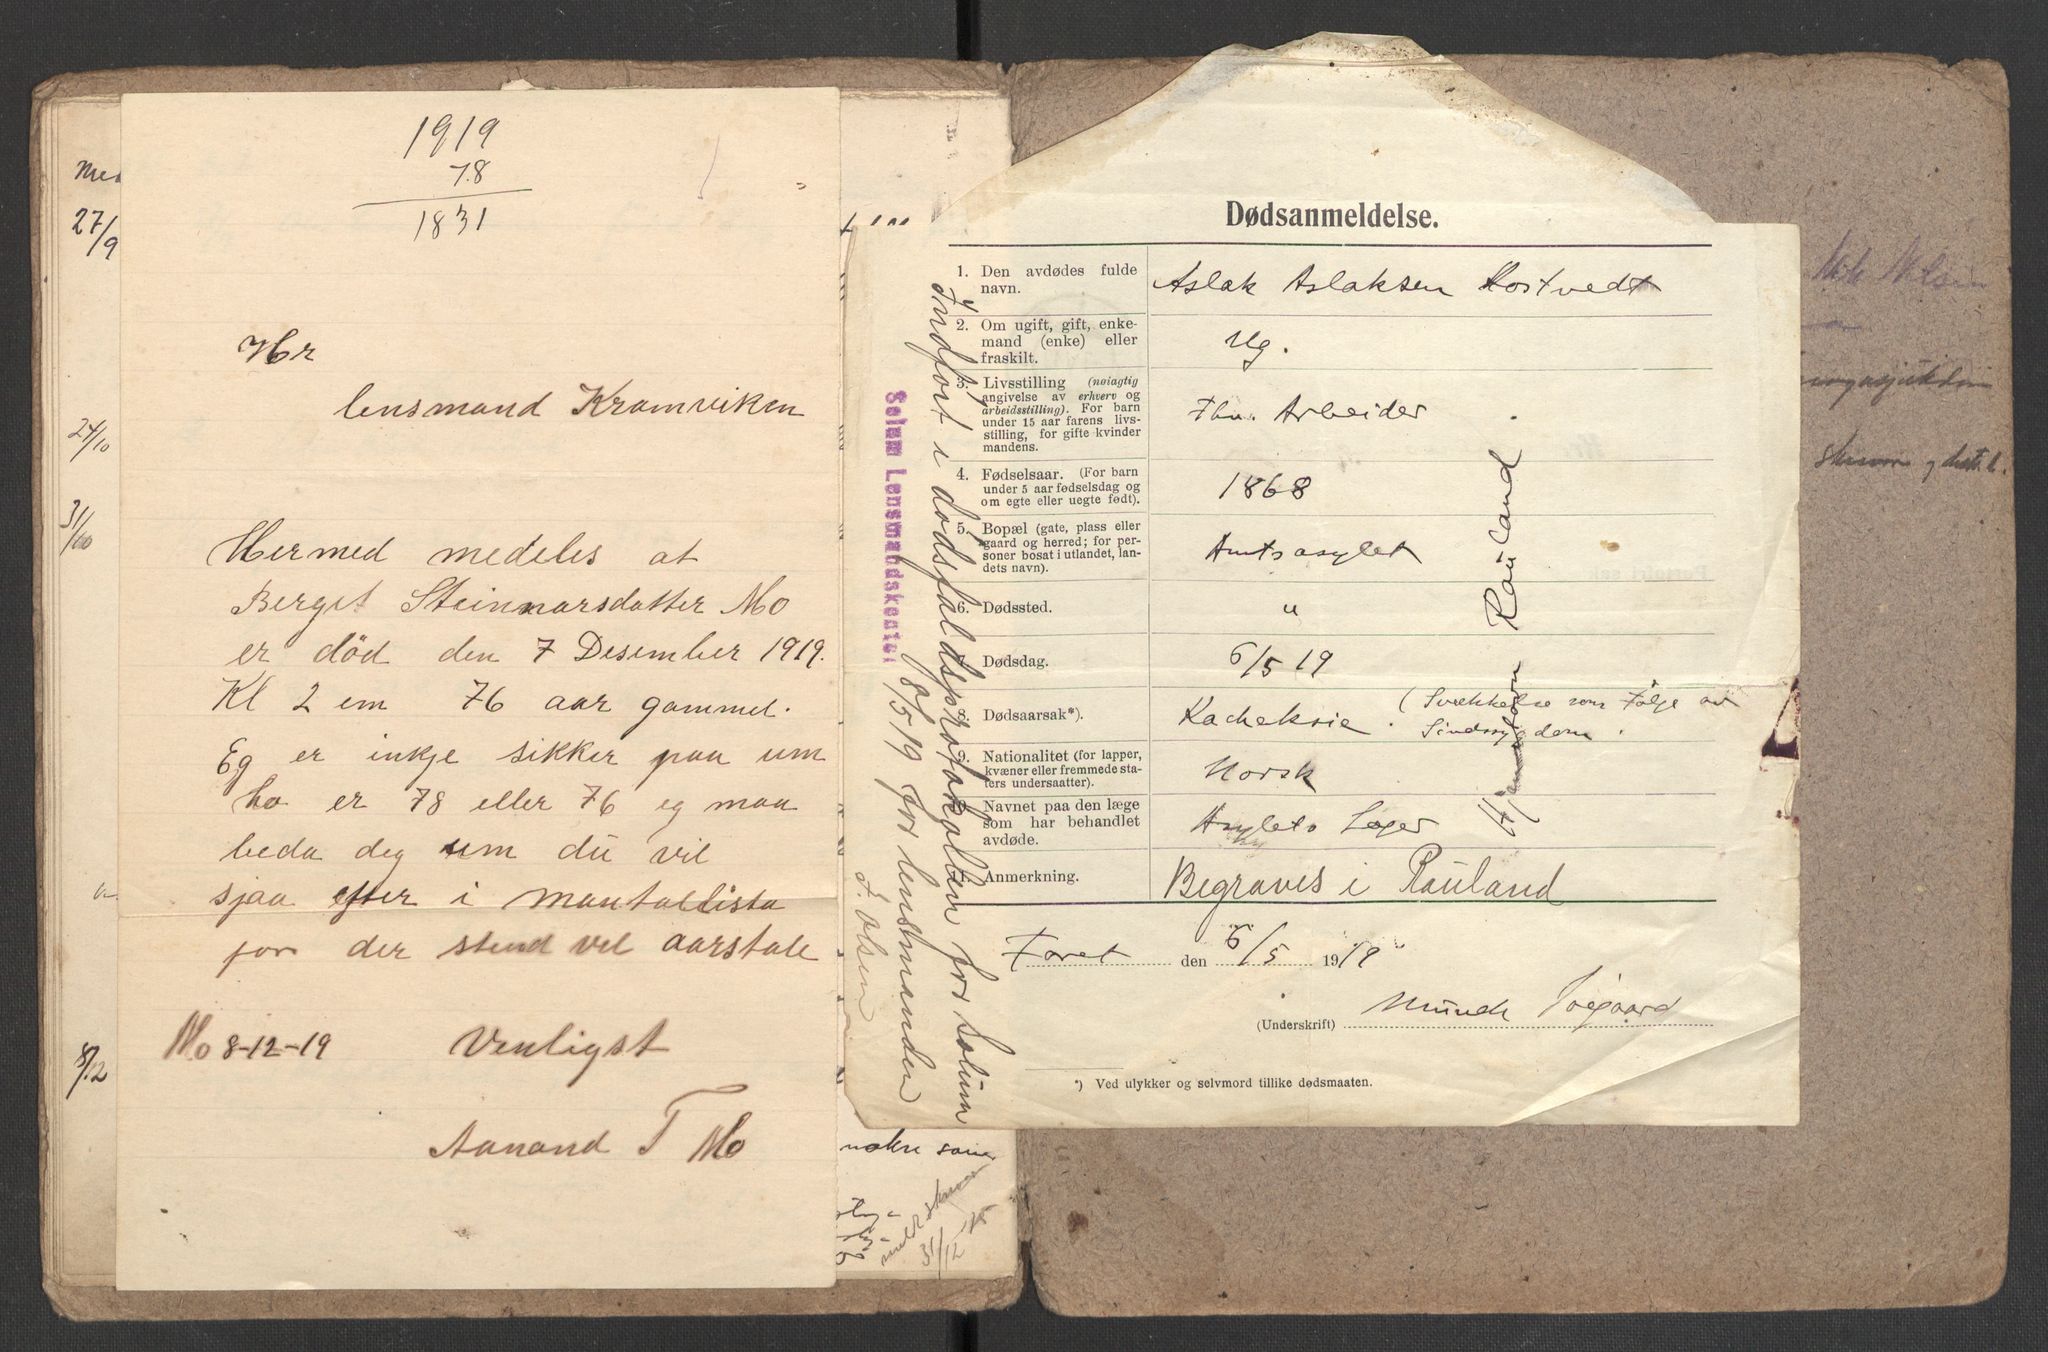 1919
78
1831
Hr
lensmand Kromviken
Hermed medeles at
Berget Steinnarsdatter Mo
er död den 7 Desember 1919.
Kl 2 em 76 aar gammel.
Eg er inkje sikker paa um
ho er 78 eller 76 eg maa
beda deg um du vil
sjaa efter i mantallista
for der stend vel aarstale
Mo 8-12-19 Venligst
Aanond T Mo
27/9
24/10
31/10
8/12
nokre
31/12
Dødsanmeldelse.
1. Den avdødes fulde
navn.
Aslak Aslaksen Hostvedt
2. Om ugift, gift, enke-
mand (enke) eller
fraskilt.
Ug.
3. Livsstilling (nøiagtig
angivelse av erhverv og
arbeidsstilling). For barn
under 15 aar farens livs-
stilling, for gifte kvinder
mandens.
Fhv. Arbeider
4. Fødselsaar. (For barn
under 5 aar fødselsdag og
om egte eller uegte født).
1868
5. Bopæl (gate, plass eller
gaard og herred; for per-
soner bosat i utlandet, lan-
dets navn).
Amtsasylet
6. Dødssted.
"
Dødsdag.
6/5 19
Dødsaarsak*).
Kacheksie. (Svækkelse som Følge av
Sindssygdom.
9. Nationalitet (for lapper,
kvæner eller fremmede sta-
ters undersaatter).
Norsk
Navnet paa den læge
som har behandlet
avdøde.
Asylets Læger
Anmerkning.
Begraves i Rauland
Hjemstavn Rauland
Foret den 6/5 1919
(Underskrift) Munch Søegaard
*) Ved ulykker og selvmord tillike dødsmaaten.
Indført i dødsfaldsprotokollen for Solum
Solum Lensmandskontor
8/5 19 for lensmanden
F. Olsen